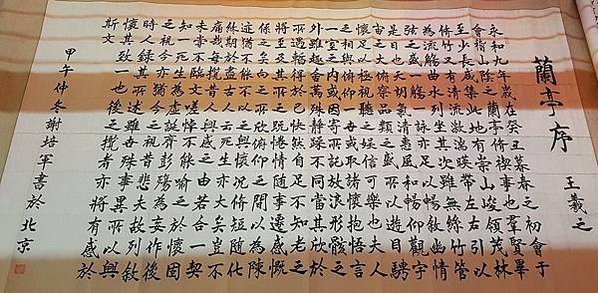 蘭亭序
王羲之
永和九年歲在癸丑暮春之初會于
會稽山陰之蘭亭修禊事也羣賢畢
至少長咸集此地有崇山峻領茂林
修竹又有清流激湍暎帶左右引以
為流觴曲水列坐其次雖無絲竹管
弦之盛一觴一詠亦足以暢敘幽情
是日也天朗氣清惠風和暢仰觀宇
宙之大俯察品類之盛所以遊目騁
懷足以極視聽之娛信可樂也夫人
之相與俯仰一世或取諸懷抱悟言
一室之內或因寄所託放浪形骸之
外雖趣舍萬殊靜躁不同當其欣於
所遇暫得於己快然自足不知老之
將至及其所之既惓情隨事遷感慨
係之矣向之所欣俛仰之間以為陳
迹猶不能不以之興懷況修短隨化
終期於盡古人云死生亦大矣豈不
痛哉每攬昔人興感之由若合一契
未嘗不臨文嗟悼不能喻之於懷固
知一死生為虛誕齊彭殤為妄作後
之視今亦猶今之視昔悲夫故列敘
時人錄其所述雖世殊事異所以興
懷其致一也後之攬者亦將有感於
斯文
甲午仲冬謝培軍書於北京